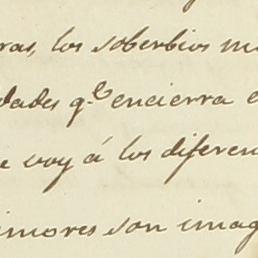 ras, los soberbios m
dades q.e encierra e
e voy á los diferen
imores son imag